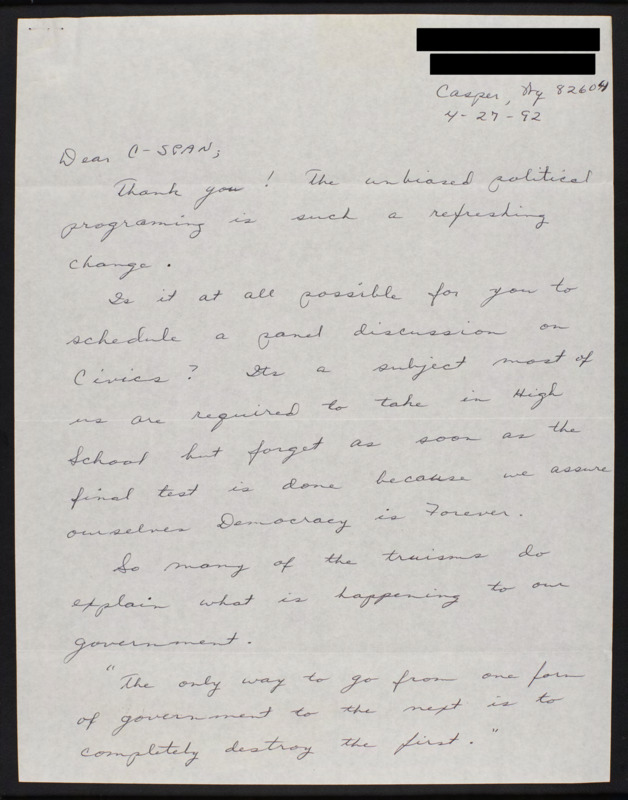 Casper, Wy 82604
4-27-92
Dear C-SPAN;
Thank you! The unbiased political
programing is such a refreshing
change.
Is it at all possible for you to
schedule a panel discussion on
Civics? Its a subject most of
us are required to take in High
School but forget as soon as the
final test is done because we assure
ourselves Democracy is Forever.
So many of the truisms do
explain what is happening to our
government.
"The only way to go from one form
of government to the next is to
completely destroy the first."